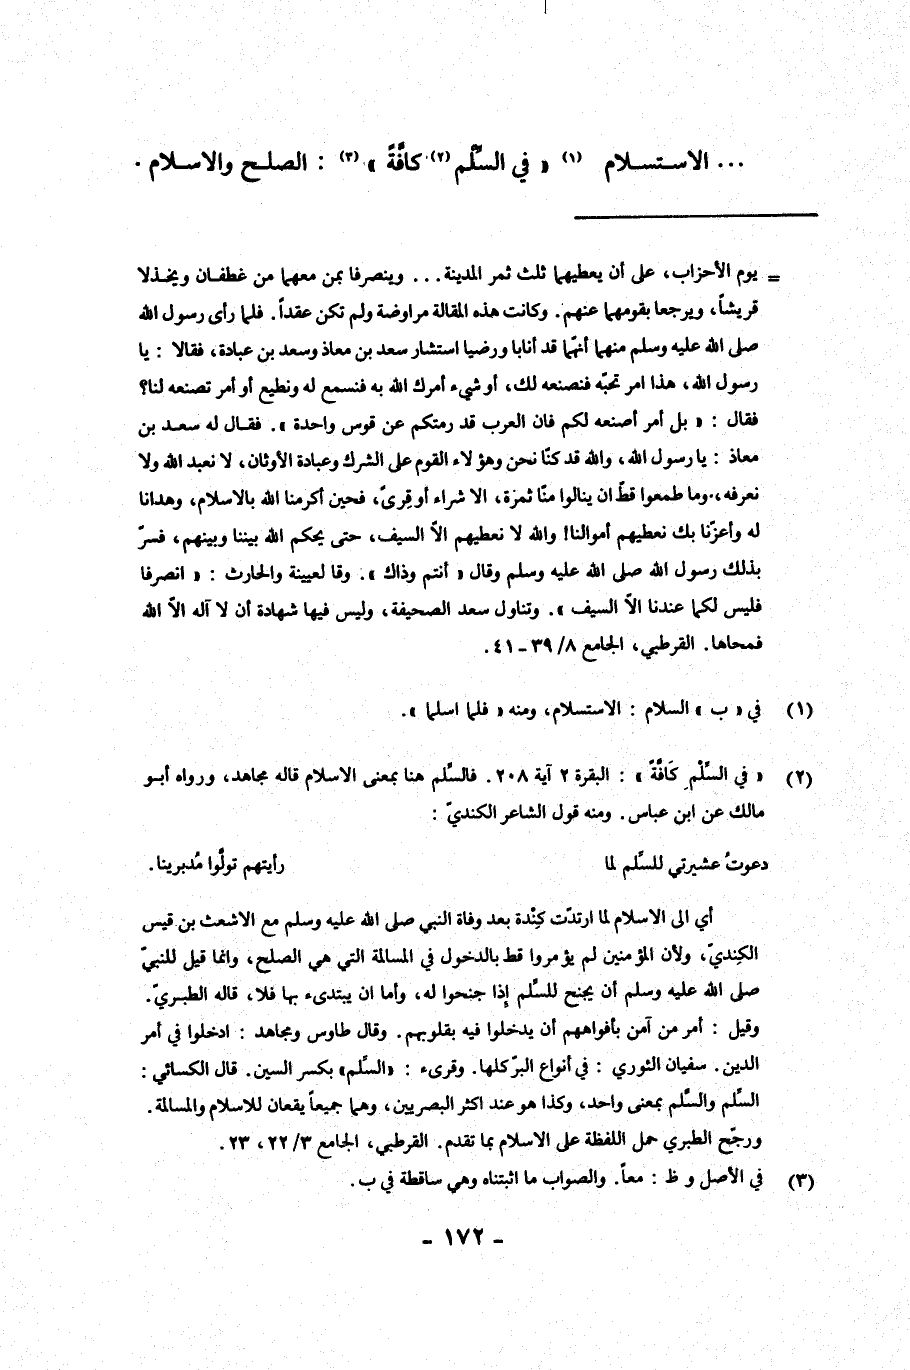 ... الاستسلام (١) « في السِّلْم (٢) كافَّةً » (٣) : الصلح والاسلام .
= يوم الأحزاب، على أن يعطيهما ثلث ثمر المدينة... وينصرفا بمن معهما من غطفان ويخذلا
قريشاً، ويرجعا بقومهما عنهم. وكانت هذه المقالة مراوضة ولم تكن عقداً. فلما رأى رسول الله
صلى الله عليه وسلم منهما أنهّما قد أنابا ورضيا استشار سعد بن معاذ وسعد بن عبادة، فقالا : يا
رسول الله، هذا امر تحبّه فنصنعه لك، أو شيء أمرك الله به فنسمع له ونطيع أو أمر تصنعه لنا؟
فقال : « بل أمر أصنعه لكم فان العرب قد رمتكم عن قوس واحدة ». فقال له سعد بن
معاذ : يا رسول الله، والله قد كنّا نحن وهؤلاء القوم على الشرك وعبادة الأوثان، لا نعبد الله ولا
نعرفه، وما طمعوا قطّ ان ينالوا منّا ثمرة، الا شراء أو قِرىً، فحين أكرمنا الله بالاسلام، وهدانا
له وأعزّنا بك نعطيهم أموالنا! والله لا نعطيهم الاّ السيف، حتى يحكم الله بيننا وبينهم، فسرّ
بذلك رسول الله صلى الله عليه وسلم وقال « أنتم وذاك ». وقا لعيينة والحارث : « انصرفا
فليس لكما عندنا الاّ السيف ». وتناول سعد الصحيفة، وليس فيها شهادة أن لا آله الاّ الله
فمحاها. القرطبي، الجامع ٨/ ٣٩ - ٤١.
(١) في « ب » السلام : الاستسلام، ومنه « فلما اسلما ».
(٢) « في السِّلْمِ كَافَّةً » : البقرة ٢ آية ٢٠٨. فالسِّلم هنا بمعنى الاسلام قاله مجاهد، ورواه أبو
مالك عن ابن عباس. ومنه قول الشاعر الكنديّ :
دعوتُ عشيرتي للسِّلم لما رأيتهم تولَّوا مُدبرينا.
أي الى الاسلام لما ارتدّت كِنْدة بعد وفاة النبي صلى الله عليه وسلم مع الاشعث بن قيس
الكِنديّ، ولأن المؤمنين لم يؤمروا قط بالدخول في المسالمة التي هي الصلح، وانما قيل للنبيّ
صلى الله عليه وسلم أن يجنح للسِّلم إذا جنحوا له، وأما ان يبتدىء بها فلا، قاله الطبريّ.
وقيل : أمر من آمن بأفواههم أن يدخلوا فيه بقلوبهم. وقال طاوس ومجاهد : ادخلوا في أمر
الدين. سفيان الثوري : في أنواع البرّ كلها. وقرىء : «السِّلم» بكسر السين. قال الكسائي :
السِّلم والسَّلم بمعنى واحد، وكذا هو عند اكثر البصريين، وهما جميعاً يقعان للاسلام والمسالمة.
ورجّح الطبري حمل اللفظة على الاسلام بما تقدم. القرطبي، الجامع ٣/ ٢٢، ٢٣.
(٣) في الأصل و ظ : معاً. والصواب ما اثبتناه وهي ساقطة في ب.
- ١٧٢ -